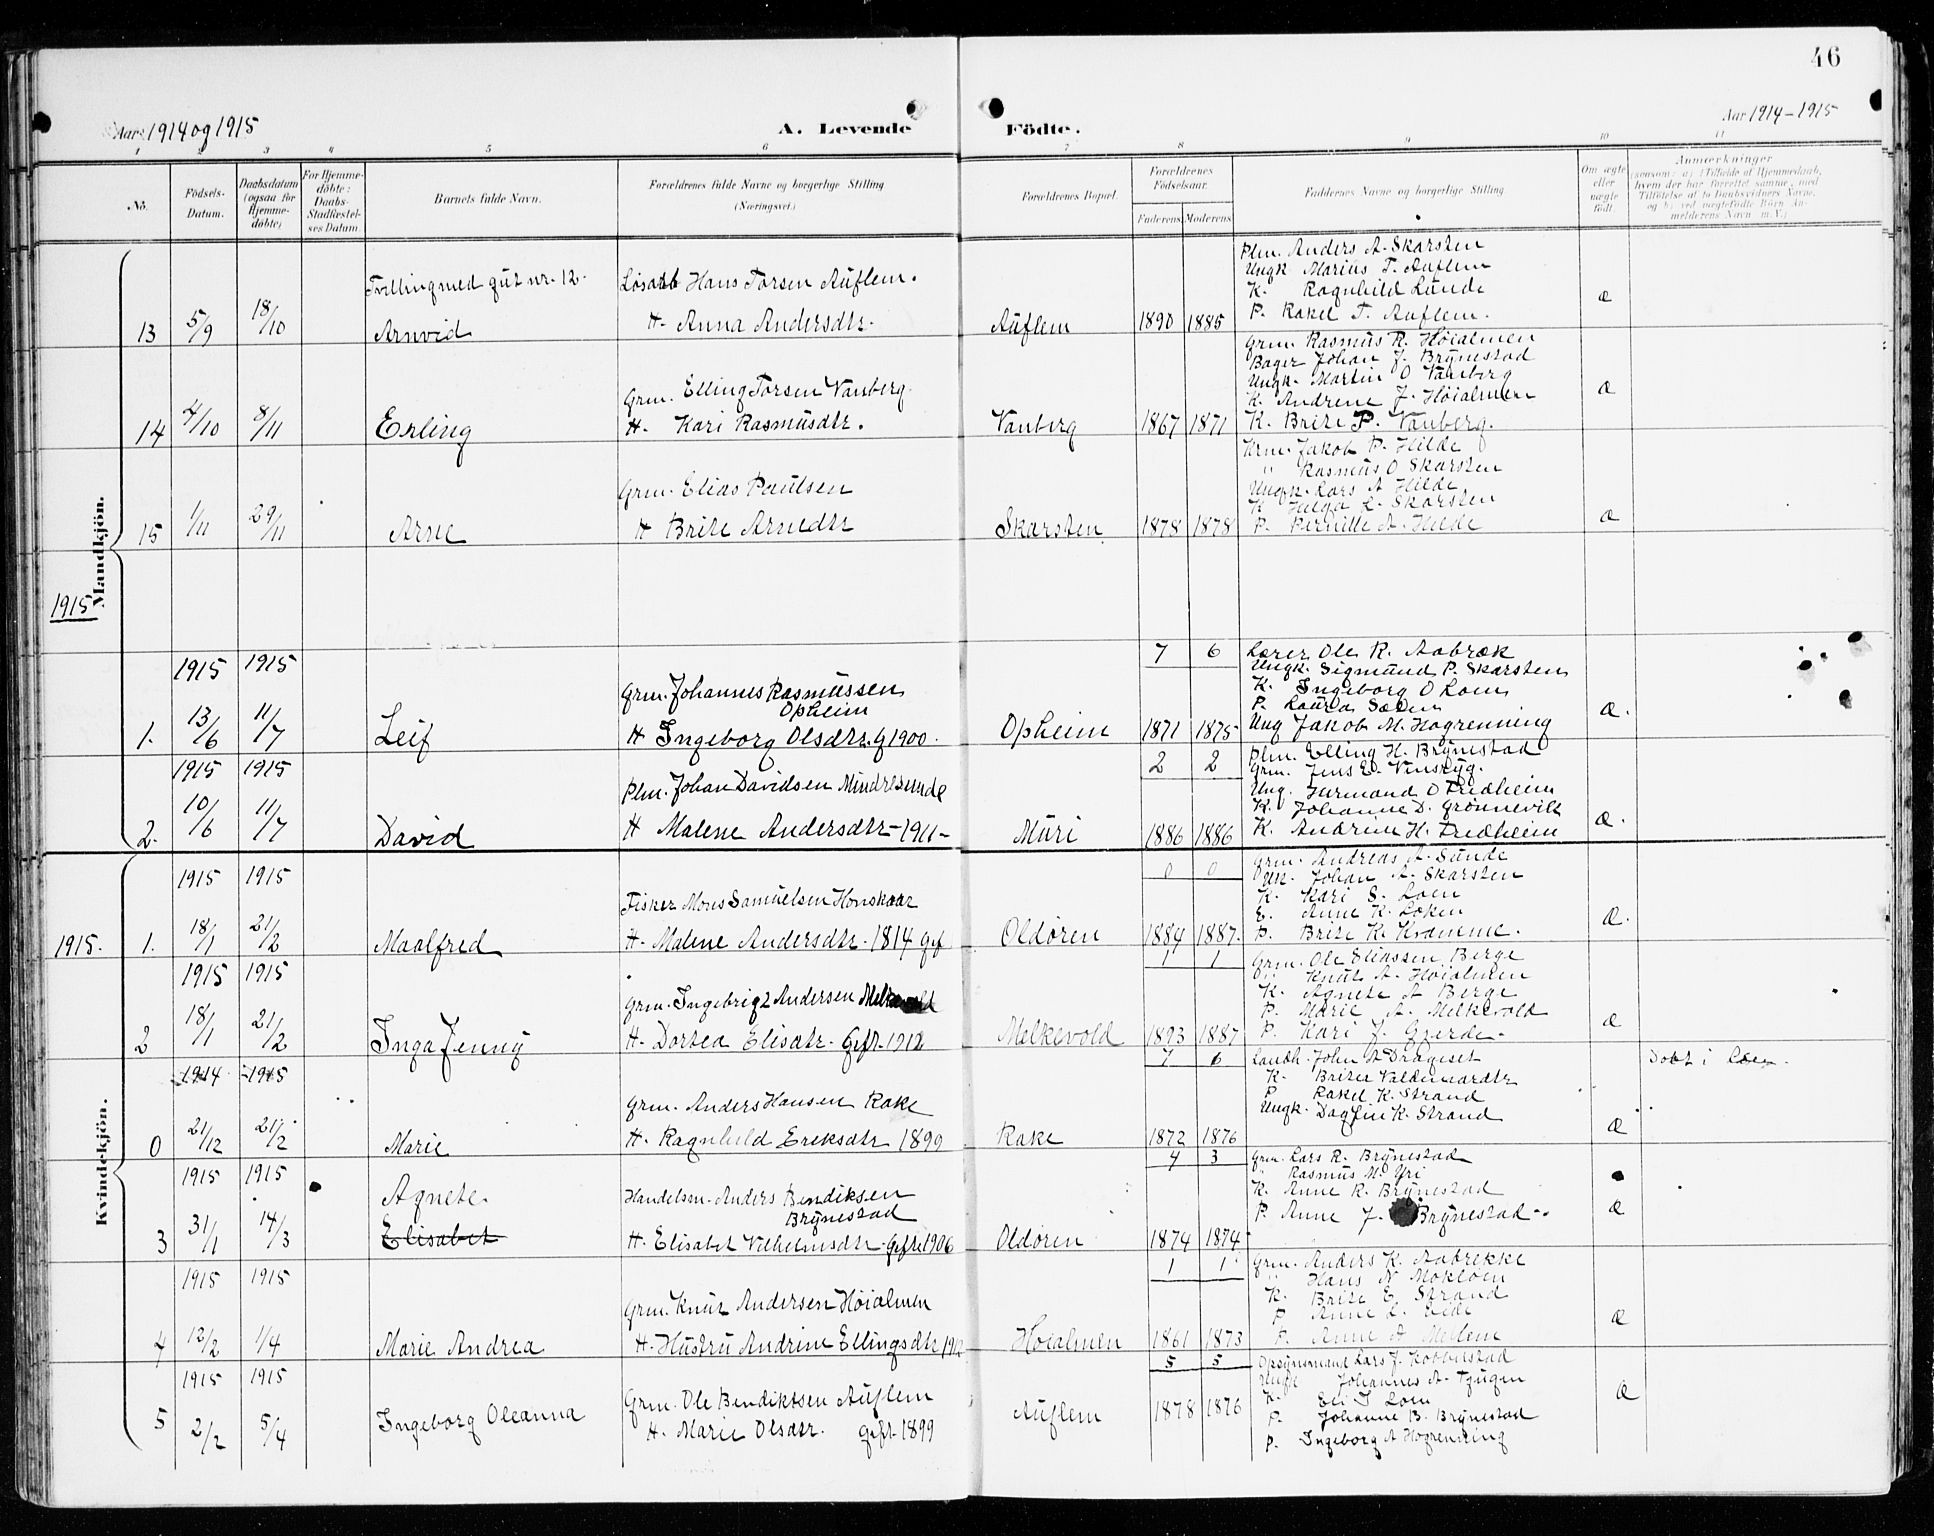 46
Aar 1914 og 1915
A. Levende
Födte.
Aar 1914-1915
1 2 3 4 5 6 7 8 9 10 11
No. Födsels-Datum. Daabsdatum (ogsaa for Hjemme-döbte) For Hjemme-döbte: Daabs-Stadfæstel-ses Datum. Barnets fulde Navn. Forældrenes fulde Navne og borgerlige Stilling (Næringsvei.) Forældrenes Bopæl. Forældrenes Födselsaar. Faderens Moderens Faddernes Navne og borgerlige Stilling Om ægte eller uægte födt. Anmærkninger
(saasom: a) i Tilfælde af Hjemmedaab, hvem der har forrettet samme, med Tilföielse af to Daabsvidners Navne, og b) ved uægtefödte Börn An-melderens Navn m. V.)
Mandkjön.
Tvilling med gut nr. 12.
13 5/9 18/10 Arnvid
Løsarb Hans Torsen Auflem.
H. Anna Andersdtr.
Auflem 1890 1885
Plm. Anders A. Skarsten
Ungk Marius T. Auflem
K. Ragnhild Sunde
P. Rakel T. Auflem.
Æ
14 4/10 8/11 Erling
Grm. Elling Torsen Vanberg
H. Kari Rasmusdtr.
Vanberg 1867 1871
Grm. Rasmus R. Høialmen
Bager Johan J. Brynestad
Ungk. Martin O Vanberg
K. Andrene J. Høialmen
K. Brite P. Vanberg.
Æ
15 1/11 29/11 Arne
Grm. Elias Paulsen
H Brite Arnedtr
Skarsten 1878 1878
Krm. Jakob P. Hilde
" Rasmus O Skarsten
Ungk. Lars A Hilde
K Helga L. Skarsten
P. Pernille A. Hilde
Æ
1915
1915 1915
1. 13/6 11/7 Leif
Grm. Johannes Rasmussen
Opheim
H Ingeborg Olsdtr. g 1900.
Opheim 7 6
1871 1875
Lærer Ole R. Aabræk
Ungk. Sigmund P. Skarsten
K. Ingeborg O Loen
P. Laura Sæten
Ung Jakob M. Hogrenning
Æ.
1915 1915
2. 10/6 11/7 David
Plm. Johan Davidsen Mindresunde
H Malene Andersdtr - 1911 -
Muri 2 2
1886 1886
Plm. Elling H. Brynestad
Grm. Jens E. Vinsryg.
Ung. Hermand O Fredheim
K. Johanne D. Grønnevik
K. Andrine H. Fredheim
Æ.
Kvindekjön.
1915.
1915 1915
1. 18/1 21/2 Maalfred
Fisker Mons Samuelsen Honskaar
H. Malene Andersdtr. 1814 gif
Oldøren 0 0
1884 1887.
Grm. Andreas A. Sunde
Uk. Johan A. Skarsten
K. Kari S. Loen
E. Anne K. Løken
P. Brite K. Kvamme.
Æ.
1915 1915
2 18/1 21/2 Inga Jenny
Grm. Ingebrigt Andersen Melkevold
H. Dortea Elisdtr. Gift 1912
Melkevold 1 1
1893 1887
Grm. Ole Eliassen Berge
" Knut A. Høialmen
K. Agnete A Berge
P. Marie A. Melkevold
P. Kari J. Gjerde.
Æ
1914 1915
0 21/12 21/2 Marie
Grm. Anders Hansen Rake
H. Ragnhild Eriksdtr 1899
Rake 7 6
1872 1876
Landh. John A Drageset
K. Brite Valdemardtr
P Rakel K. Strand
Ungk. Dagfin K. Strand
Æ
Døbt i Loen.
1915 1915
Agnete.
3 31/1 14/3 Elisabet
Handelsm. Anders Bendiksen
Brynestad
H. Elisabet Vilhelmsdtr. gifte 1906
Oldøren 4 3
1874 1874
Grm. Lars R. Brynestad
" Rasmus M. Yri
K. Anne R. Brynestad
P. Anne J. Brynestad
Æ
1915 1915
4 12/2 1/4 Marie Andrea
Grm. Knut Andersen Høialmen
H. Hustru Andrine Ellingsdtr 1912
Høialmen 1 1
1861 1873
Grm. Anders K. Aabrekke
" Hans N Mokloen
K. Brite E. Strand
P Anne L. Eide
P. Anne A Mellem
Æ
1915 1915
5 2/2 5/4 Ingeborg Oleanna
Grm. Ole Bendiktsen Auflem
H. Marie Olsdtr. gift 1899
Auflem 5 5
1878 1876
Opsynsmand Lars J. Kobberstad
Ungk Johannes A. Tjugen
K. Eli I Loen
P. Johanne B. Brynestad
P. Ingeborg A Hogrenning
Æ